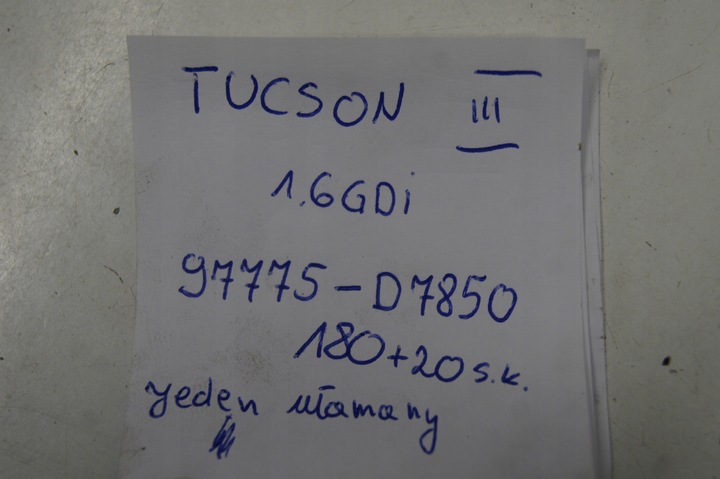 TUCSON III
1.6GDi
97775-D7850
180+20 s.k.
jeden ułamany